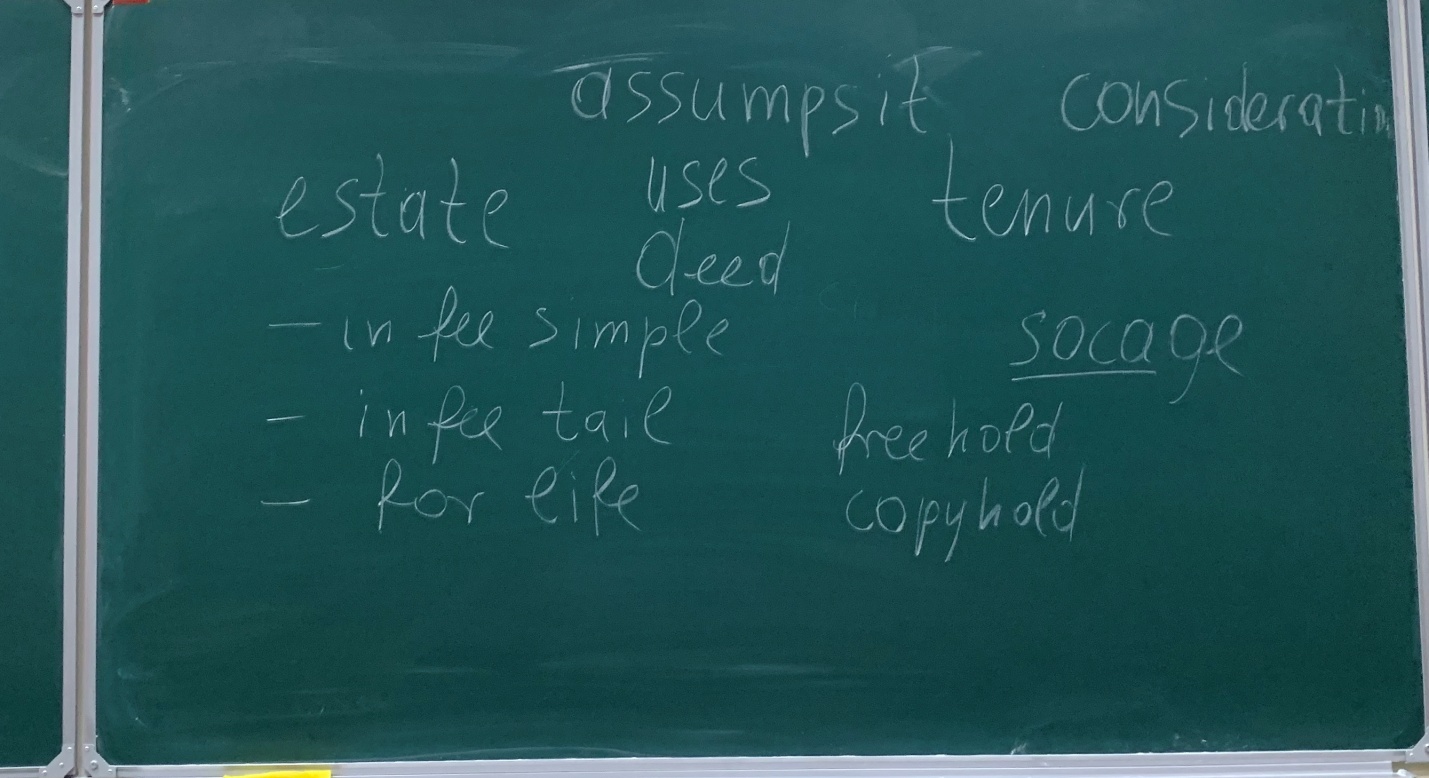 assumpsit consideratin
estate uses tenure
deed
– in fee simple
socage
– in fee tail
freehold
– for life
copyhold